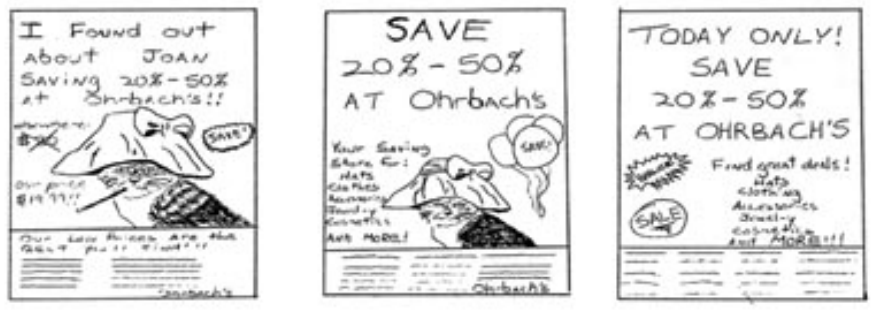 I Found out
About Joan
Saving 20%-50%
at Ohrbach's!!
elsewhere:
SAVE!
our price
$19.99!!
Our Low Prices Are the
Best
Ohrbach's
SAVE
20%-50%
AT Ohrbach's
SAVE!
Your Saving
Store for:
Hats
Clothes
Accessories
Jewelry
Cosmetics
AND MORE!
Ohrbach's
TODAY ONLY!
SAVE
20%-50%
AT OHRBACH'S
Find great deals!
Hats
Clothing
Accessories
Jewelry
Cosmetics
and MORE!!!
SALE